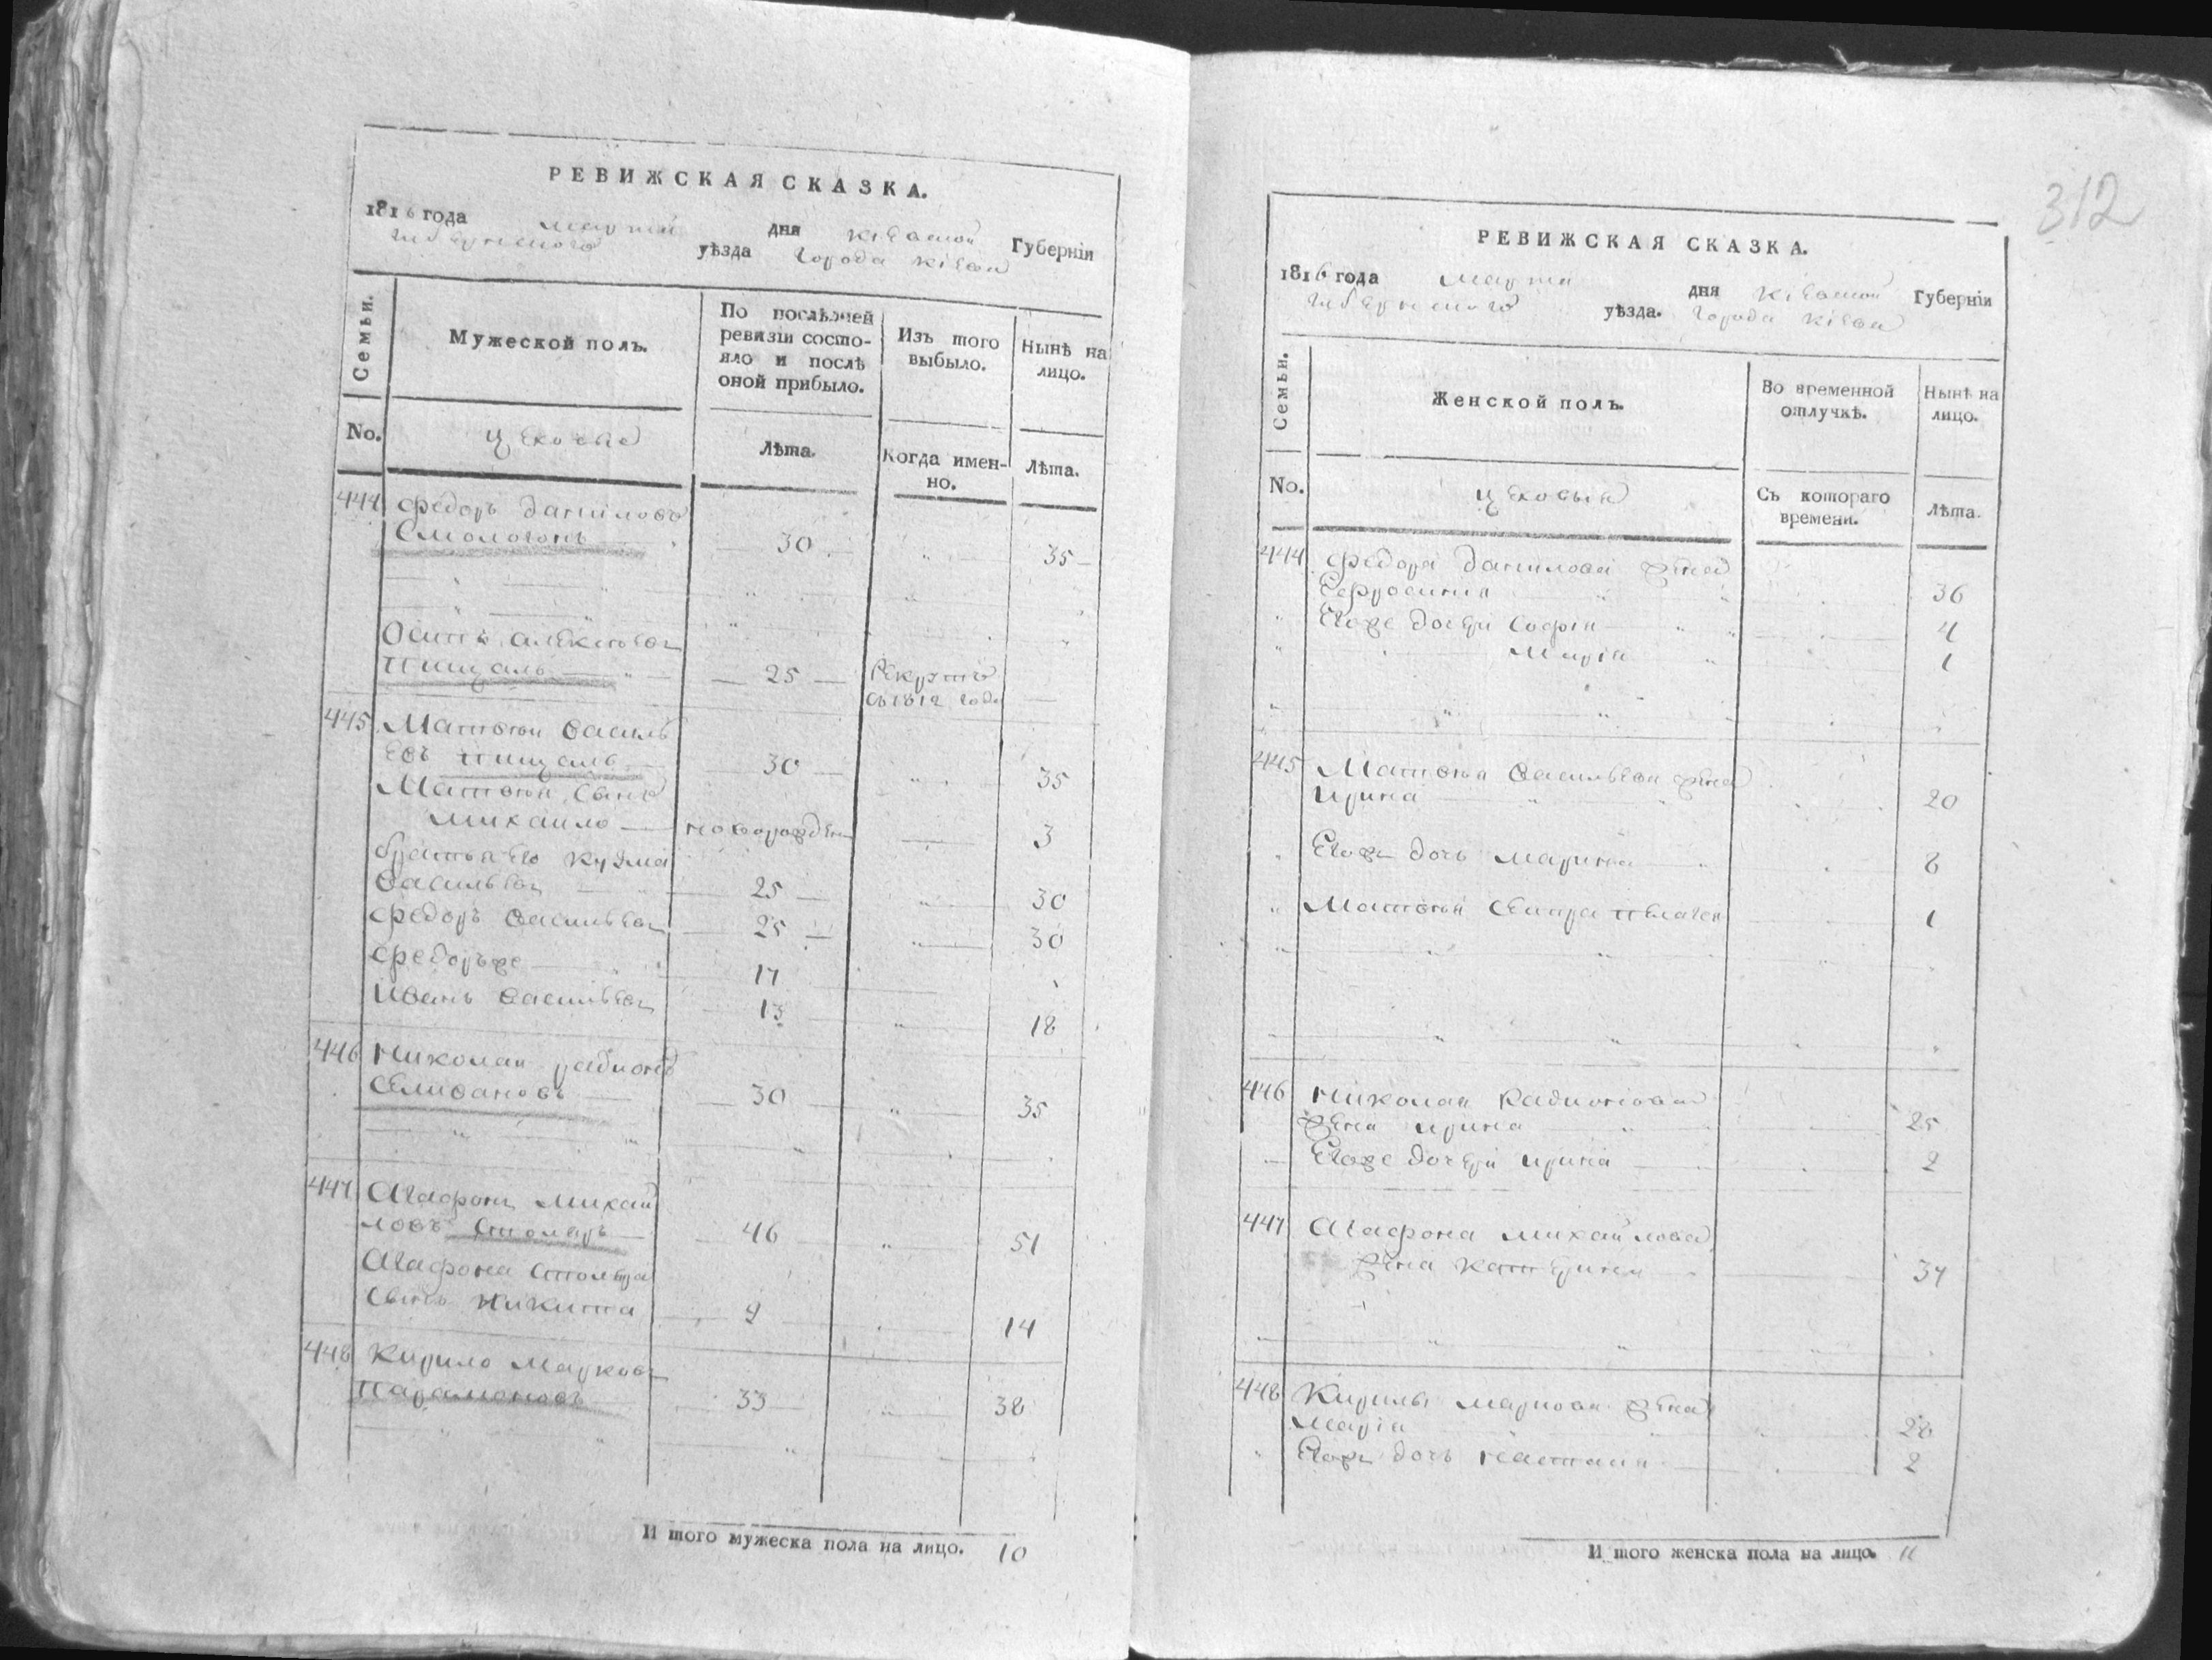 РЕВИЖСКАЯ СКАЗКА.
1816 года марта дня Кіевской Губерніи
уѣзда города Кіева
Семьи.
Мужеской полъ.
По послѣдней
ревизіи состо-
яло и послѣ
оной прибыло.
Изъ того
выбыло.
Нынѣ на
лицо.
No.
цеховые
Лѣта.
Когда имен-
но.
Лѣта.
444 Федоръ Даниловъ
Смологонъ 30 35
Осипъ Алексѣевъ
Пищаль 25 Рекрутъ
въ 1812 годе
445 Матвѣй Василь
евъ Пищаль 30 35
Матвѣя сынъ
Михайло новорожден 3
братья его Кузма
Васильевъ 25 30
Федоръ Васильевъ 25 30
Федоръже 17
Иванъ Васильевъ 13 18
446 Николай Радионовъ
Селивановъ 30 35
447 Агафонъ Михай
ловъ Столяръ 46 51
Агафона Столяра
сынъ Никита 9 14
448 Кирило Марковъ
Парамоновъ 33 38
И того мужеска пола на лицо. 10
312
РЕВИЖСКАЯ СКАЗКА.
1816 года марта дня Кіевской Губерніи
уѣзда. города Кіева
Семьи.
Женской полъ.
Во временной
отлучкѣ.
Нынѣ на
лицо.
No.
цеховыя
Съ котораго
времени.
Лѣта.
444 Федора Данилова жена
Ефросинія 36
Егоже дочери Софія 4
Марія 1
445 Матвѣя Васильева жена
Ирина 20
Егоже дочь Марина 8
Матвѣя сестра Пелагея 1
446 Николая Радионова
жена Ирина 25
Егоже дочери Ирина 2
447 Агафона Михайлова
жена Катерина 37
448 Кирилы Маркова жена
Марія 28
Егоже дочь Настасія 2
И того женска пола на лицо. 11